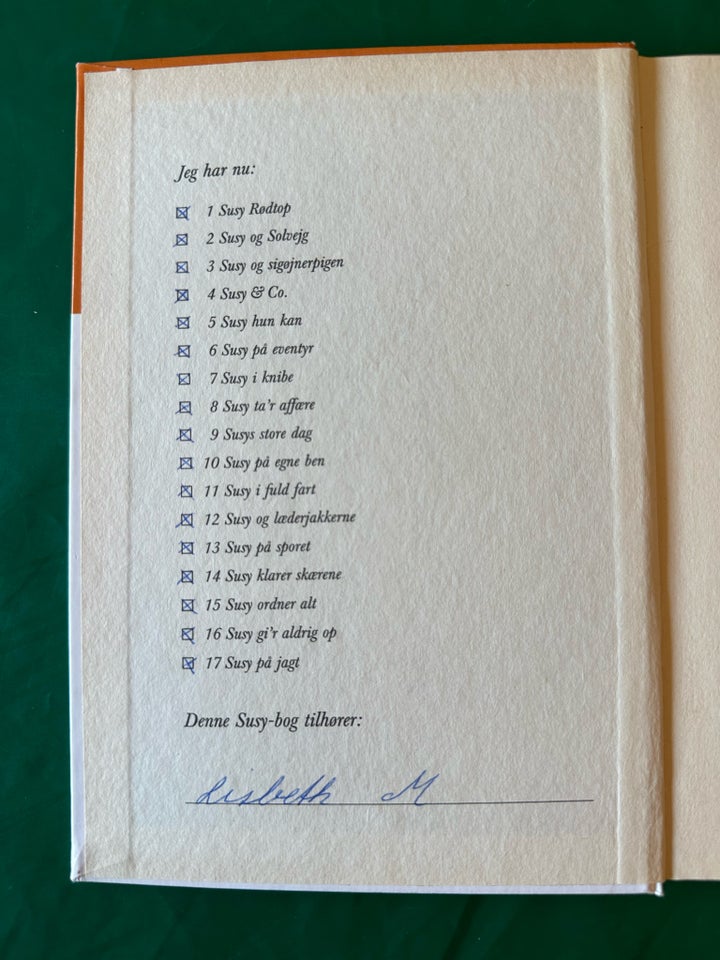 Jeg har nu:
1 Susy Rødtop
2 Susy og Solvejg
3 Susy og sigøjnerpigen
4 Susy & Co.
5 Susy hun kan
6 Susy på eventyr
7 Susy i knibe
8 Susy ta'r affære
9 Susys store dag
10 Susy på egne ben
11 Susy i fuld fart
12 Susy og læderjakkerne
13 Susy på sporet
14 Susy klarer skærene
15 Susy ordner alt
16 Susy gi'r aldrig op
17 Susy på jagt
Denne Susy-bog tilhører:
Lisbeth M